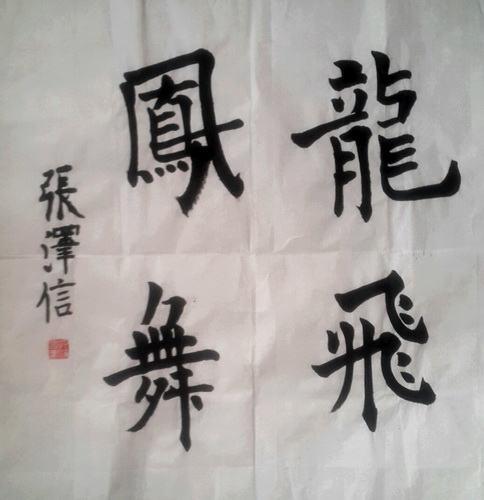 龍飛
鳳舞
張澤信